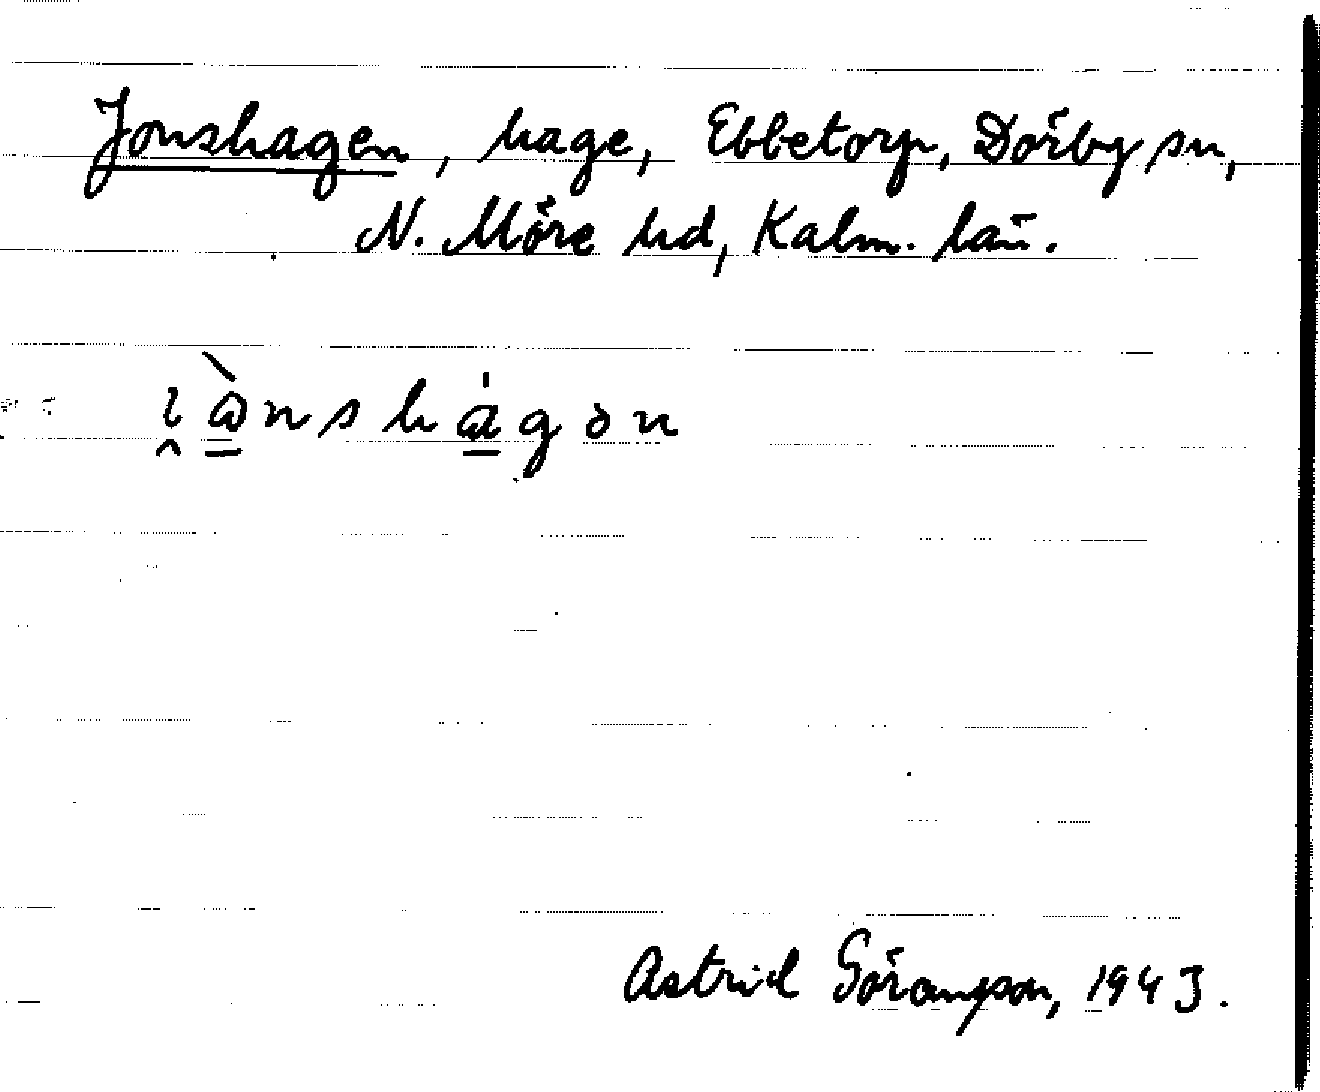 Jonshagen, hage, Ebbetorp, Dörby sn,
N. Möre hd, Kalm. län.
i̯ὼ̳nshά̳gən
Astrid Göransson, 1943.